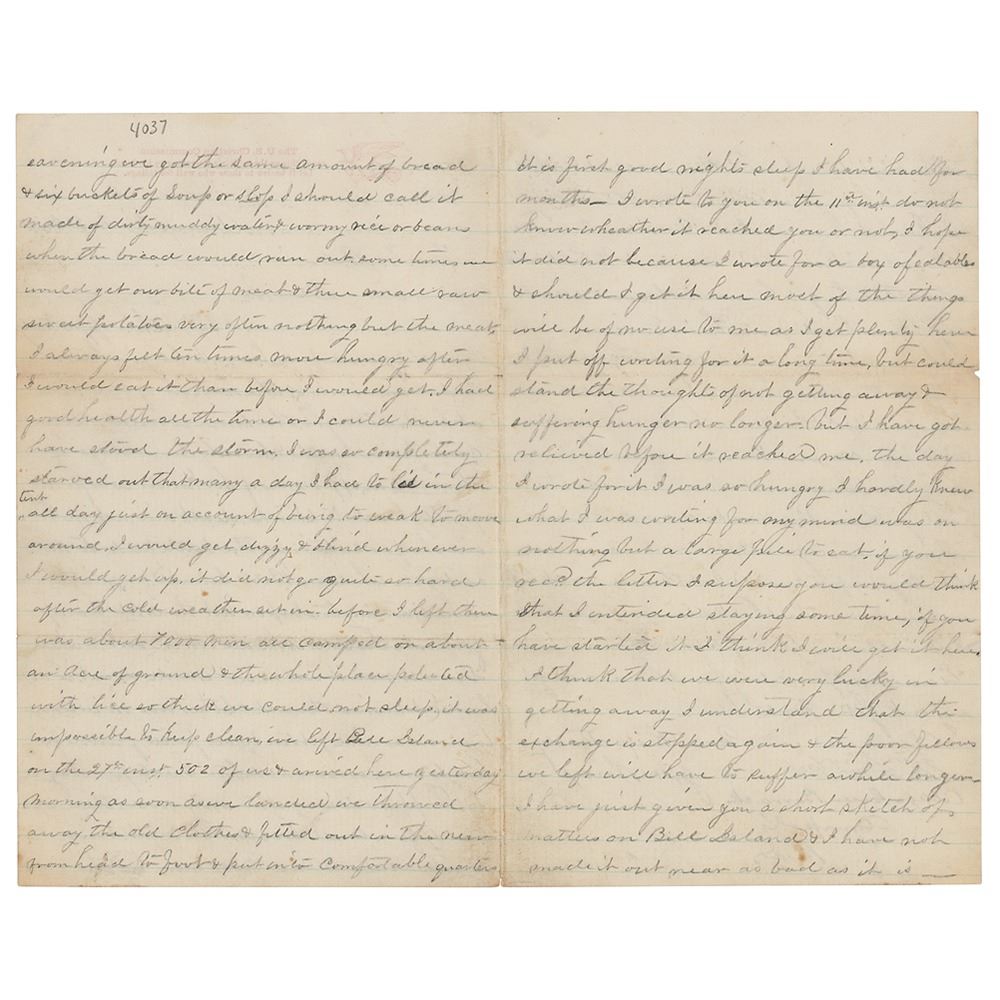 4037
eavening we got the same amount of bread
& six buckets of Soup or slop I should call it
made of dirty muddy water & wormy rice or beans
when the bread would run out. some times we
would get our bite of meat & three small raw
sweet potatoes very often nothing but the meat
I always felt ten times more hungry after
I would eat it than before I would get. I had
good health all the time or I could never
have stood the storm. I was so completely
starved out that many a day I had to lie in the
tent
all day just on account of being to weak to move
around. I would get dizzy & blind whenever
I would get up, it did not go quite so hard
after the cold weather set in. before I left there
was about 7000 men all camped on about
an Acre of ground & the whole place poluted
with lice so thick we could not sleep, it was
impossible to keep clean, we left Bell Island
on the 27th inst 502 of us & arived here yesterday
morning as soon as we landed we throwed
away the old clothes & fitted out in the new
from head to foot & put into comfortable quarters
it is first good nights sleep I have had for
months— I wrote to you on the 11th inst. do not
know wheather it reached you or not, I hope
it did not because I wrote for a box of eatables
& should I get it here most of the things
will be of no use to me as I get plenty here
I put off writing for it a long time, but could
stand the thoughts of not getting away &
suffering hunger no longer. but I have got
relieved before it reached me. the day
I wrote for it I was so hungry I hardly knew
what I was writing for my mind was on
nothing but a large pile to eat. if you
recd the letter I supose you would think
that I intended staying some time, if you
have started it I think I will get it here.
I think that we were very lucky in
getting away I understand that the
exchange is stopped again & the poor fellows
we left will have to suffer awhile longer—
I have just given you a short sketch of
matters on Bell Island & I have not
made it out near as bad as it is —